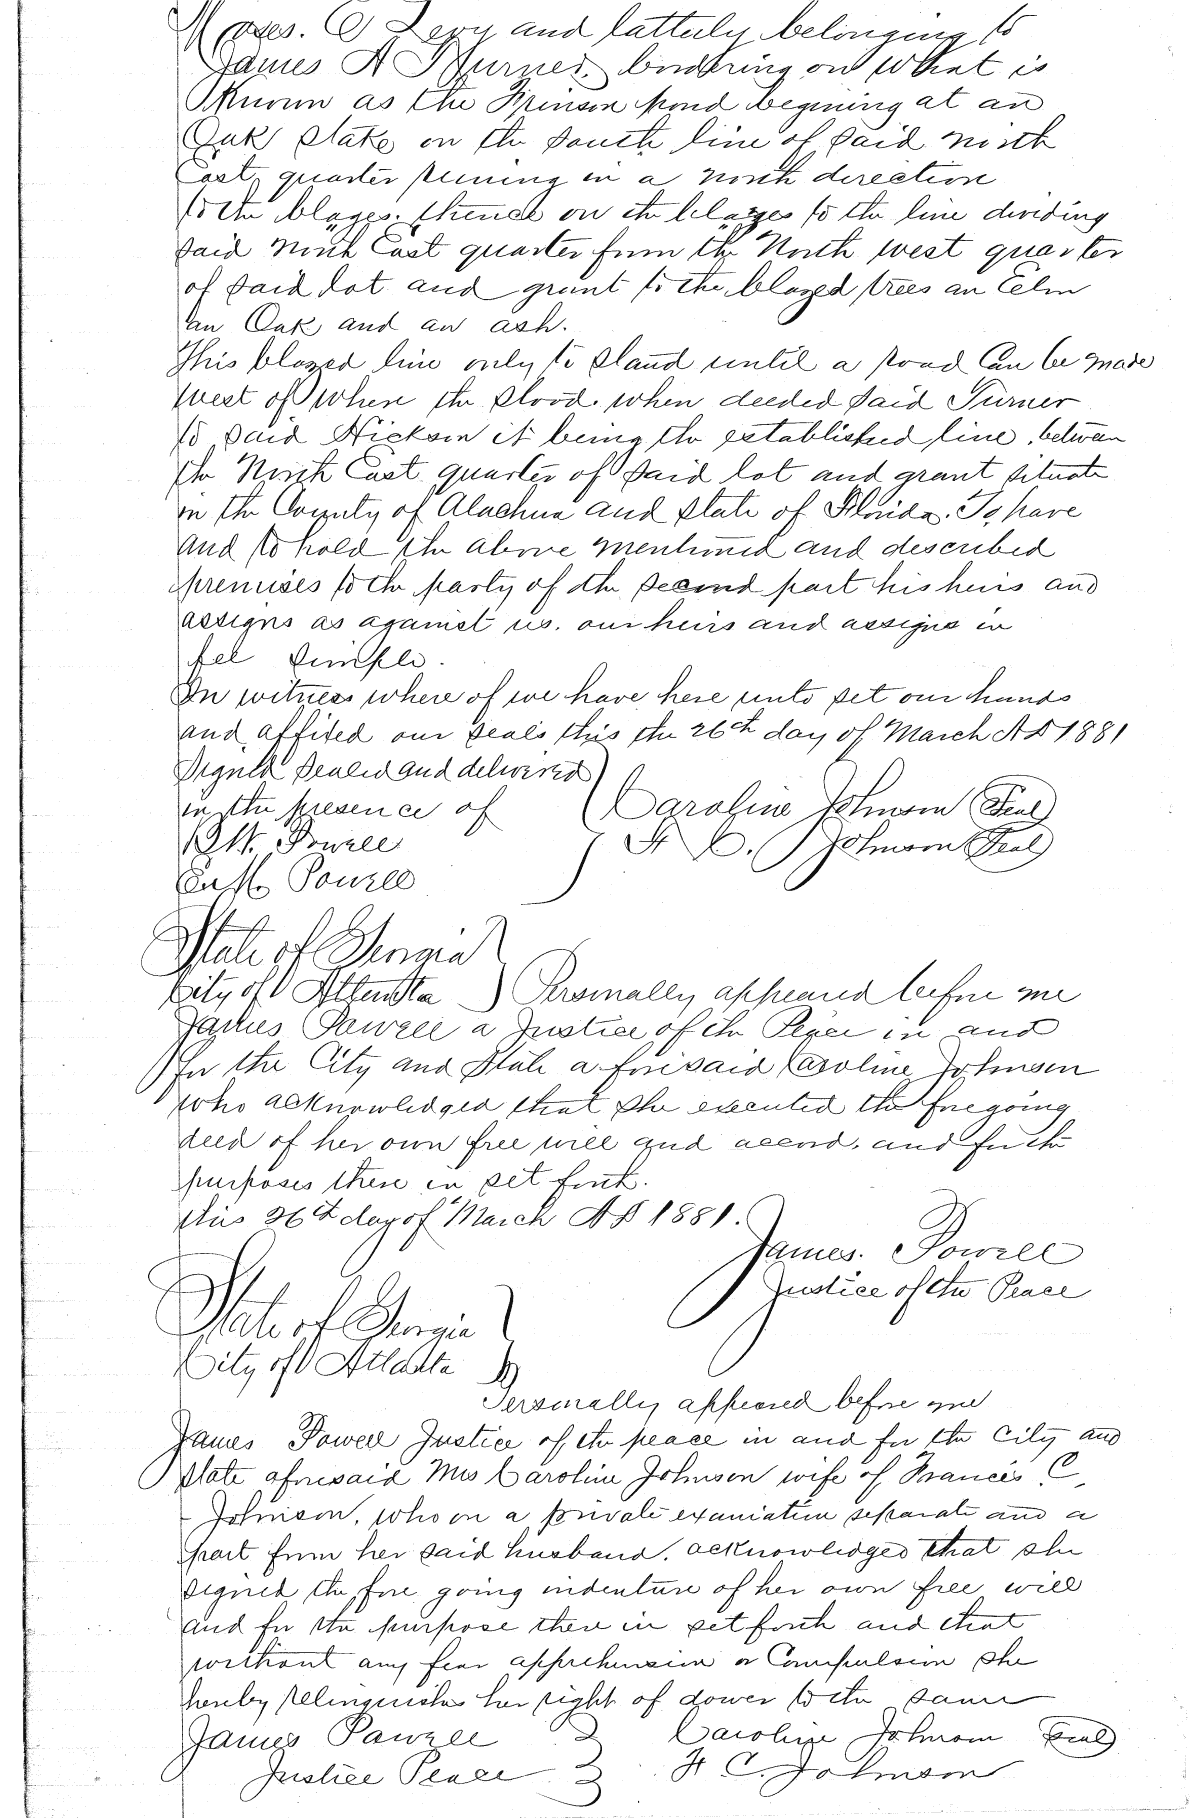 Moses. E Levy and latterly belonging to
James A Turner, bordering on what is
Known as the Prinson pond begining at an
Oak Stake on the South line of said north
East, quarter runing in a north direction
to the blazes. thence on the blazes to the line dividing
said North East quarter from the North west quarter
of said Lot and grant to the blazed trees an Elm
an Oak and an ash.
This blazed line only to stand until a road Can be made
west of when the stood. when deeded said Turner
to said Hickson it being the established line, between
the North East quarter of said lot and grant situate
in the County of Alachua and State of Florida. To have
and to hold the above mentioned and described
premises to the party of the second part his heirs and
assigns as against us. our heirs and assigns in
fee simple.
In witness where of we have here unto set our hands
and affixed our seals this the 26th day of March AD 1881
Signed Sealed and delivered
in the presence of Caroline Johnson Seal
Powell F C. Johnson Seal
Powell
State of Georgia
City of Atlanta Personally appeared before me
James Powell a Justice of the Peace in and
for the City and State a foresaid Caroline Johnson
who acknowledged that she executed the foregoing
deed of her own free will and accord, and for the
purposes there in set forth.
this 26th day of March AD 1881.
James. Powell
Justice of the Peace
State of Georgia
City of Atlanta
Personally appeared before me
James Powell Justice of the peace in and for the City and
State aforesaid Mrs Caroline Johnson wife of Francis C
Johnson, who on a private examiation separate and a
part from her said husband. acknowledged that she
signed the fore going indenture of her own free will
and for the purpose there in set forth and that
without any fear apprehension or Compulsion she
hereby relinquishes her right of dower to the same
James Powell Caroline Johnson Seal
Justice Peace F C. Johnson